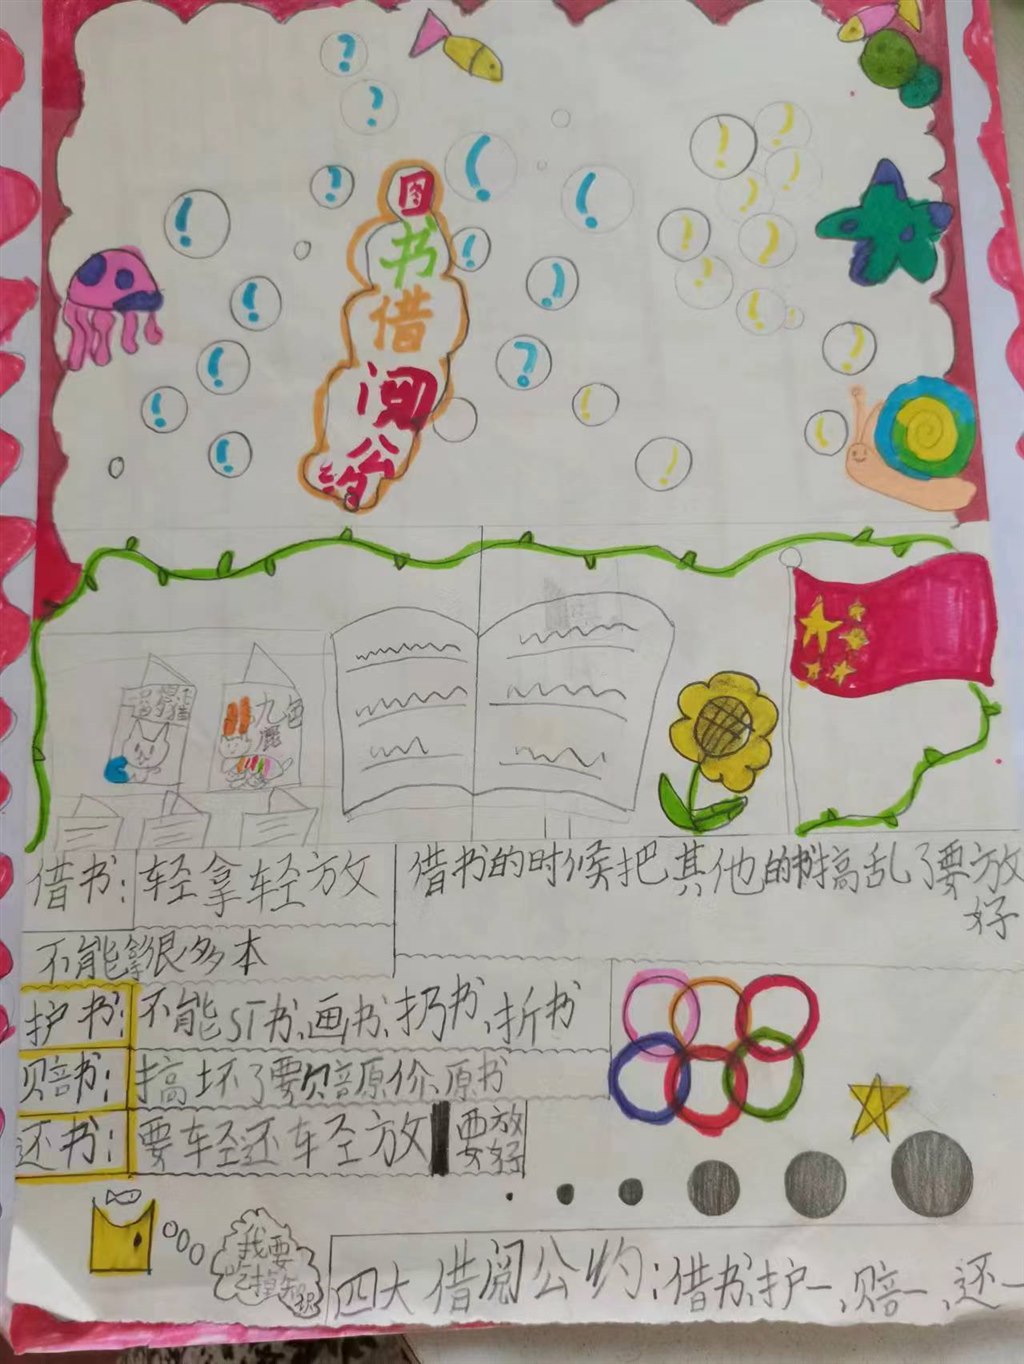 图书借阅公约
九色鹿
借书：轻拿轻放
不能拿很多本
借书的时候把其他的书搞乱了要放好
护书：不能ST书、画书、扔书、折书
赔书：搞坏了要赔原价、原书
还书：要轻还轻放 要放好
我要吃掉知识
四大借阅公约：借书、护一、赔一、还一